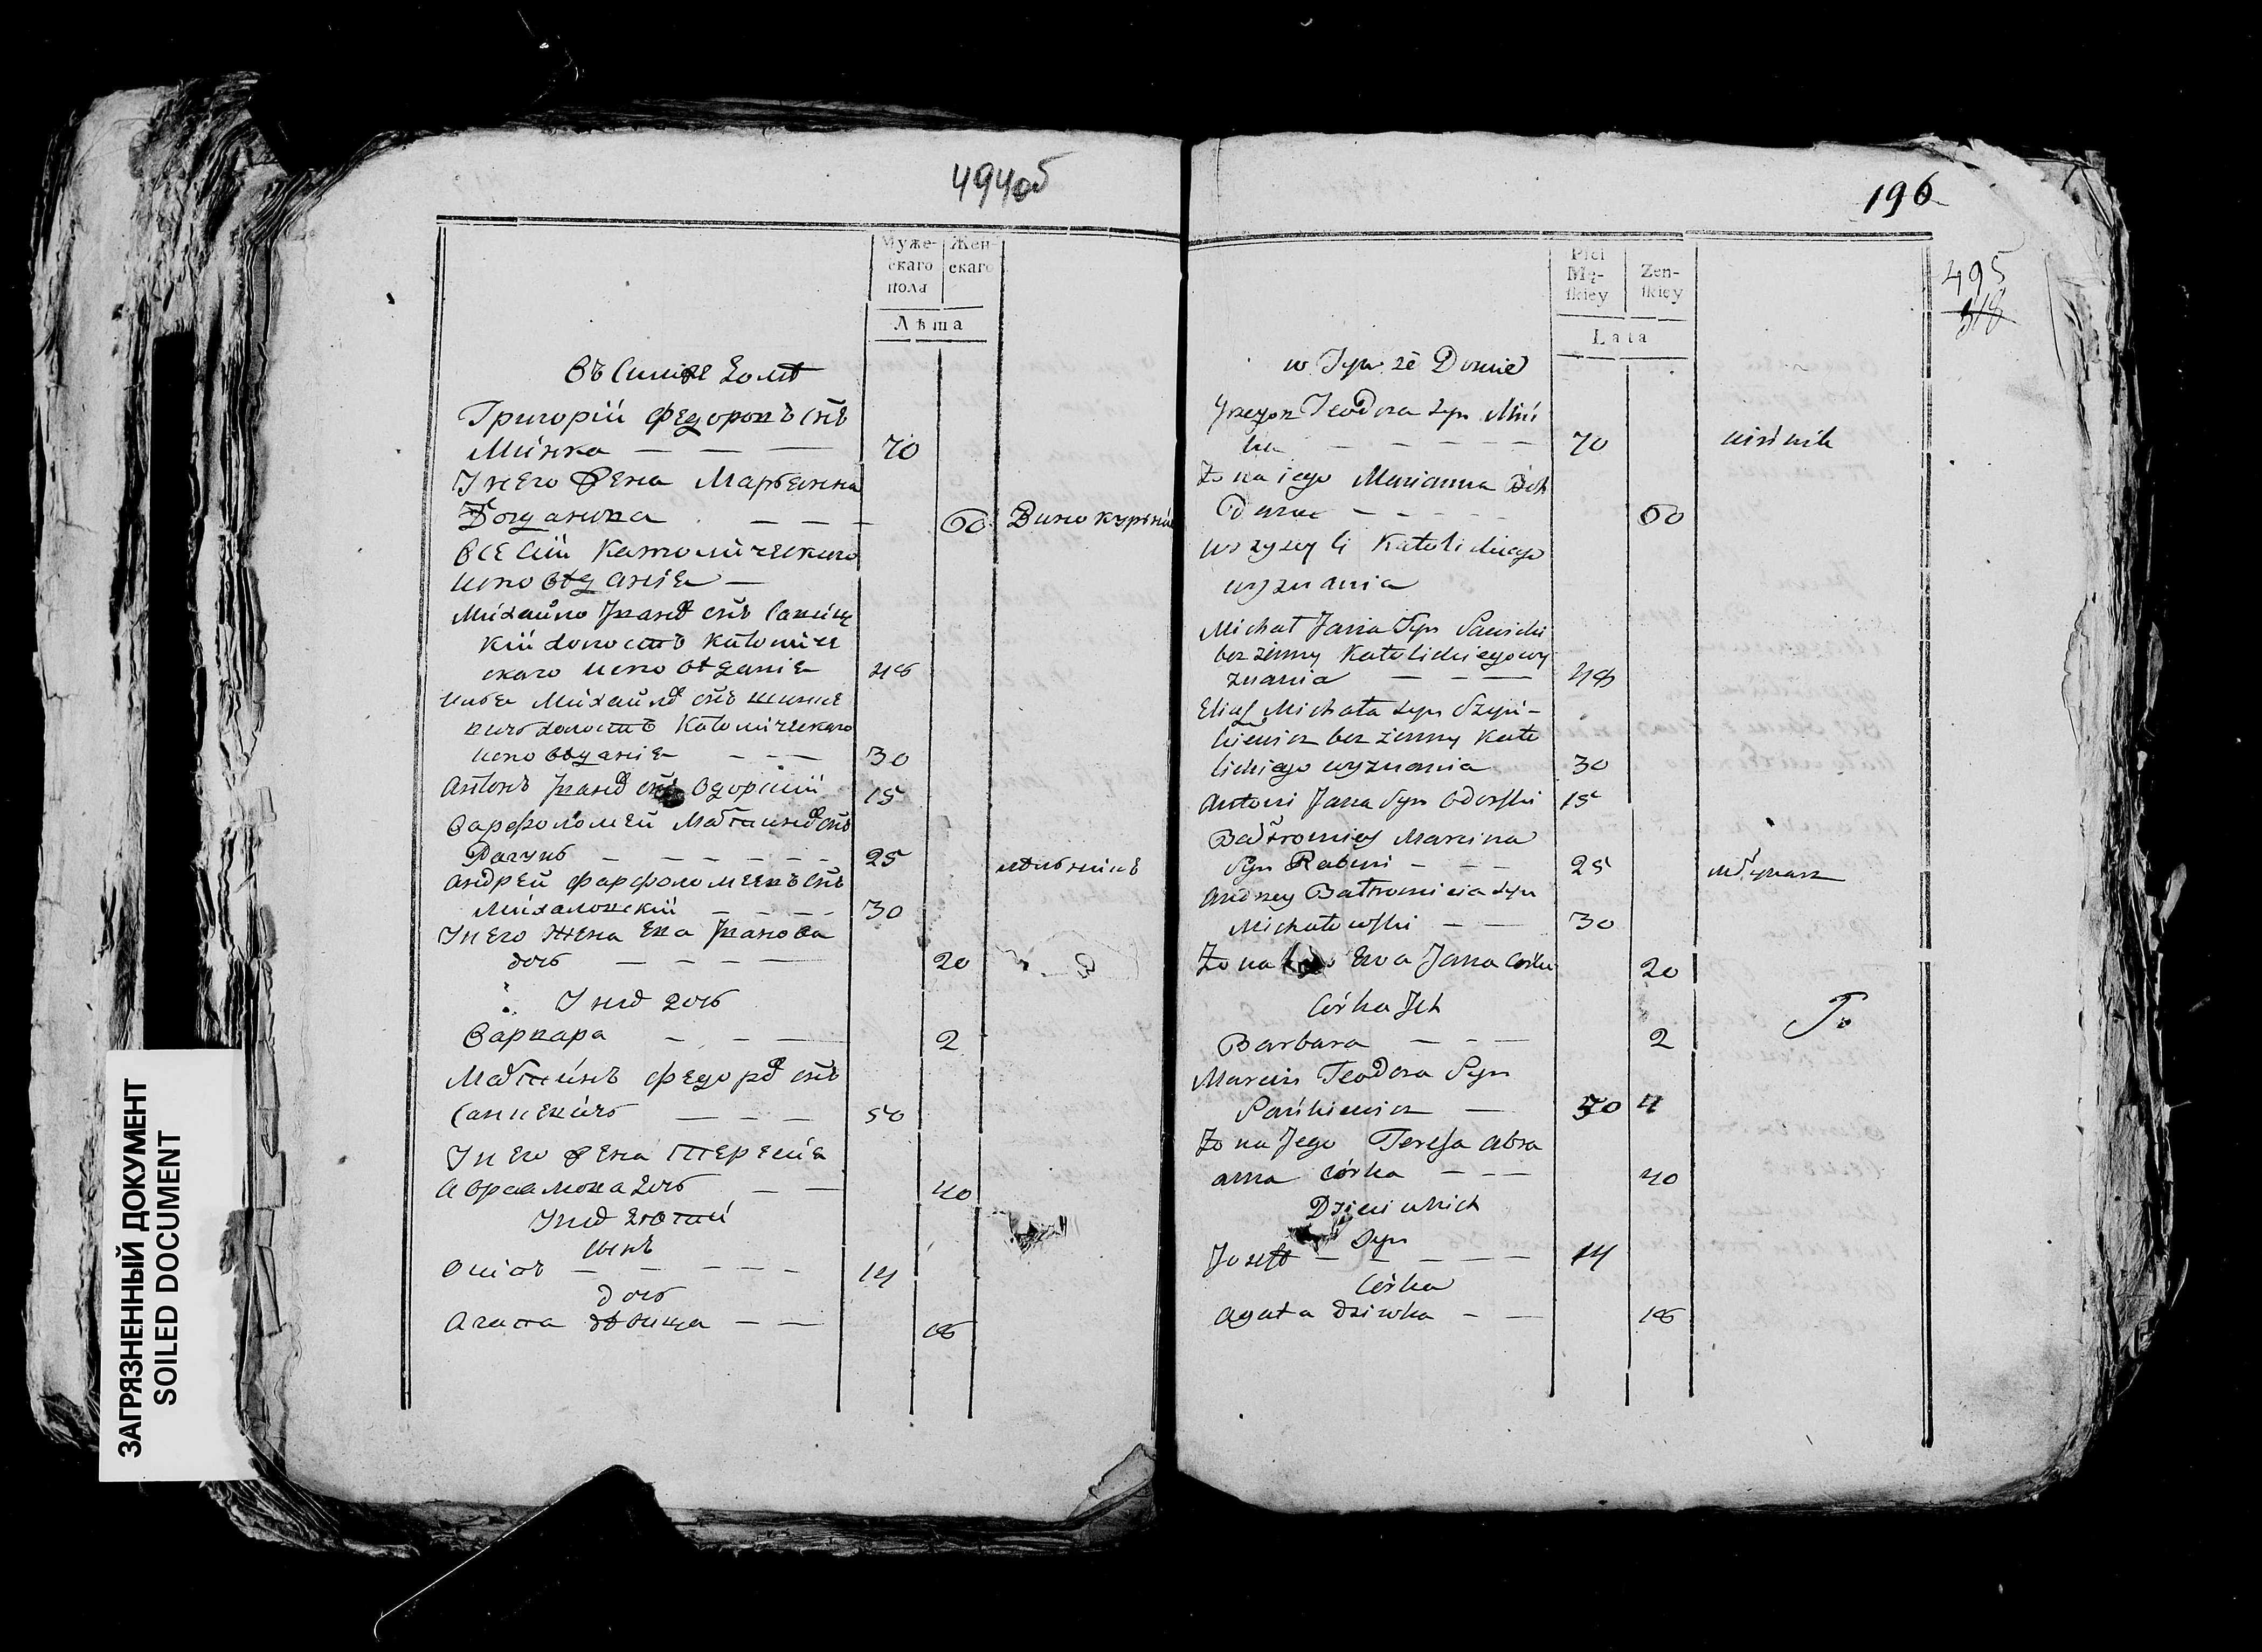 494об
Муже-
скаго
пола
Жен-
скаго
Лѣта
Григорій Федоровъ снъ
Минка — — — 70
У него жена Марьянна
Богданка — — — 60 Винокурний
всѣ сіи католическаго
исповѣданія —
Михайло Иванд снъ Савиц
кій холостъ католиче
скаго исповѣданія 48
Илья Михайлд снъ Шинке
вичъ холостъ католическаго
исповѣданія — — — 30
Антонъ Иванд снъ Одорскій 15
Варфоломей Мартинд снъ
— — — — — 25 мѣльникъ
Андрей Фарфоломеевъ снъ
Михаловскій — — — — 30
У него жена Ева Иванова
дочь — — — — 20
У нид дочь
Варвара — — — 2
Мартинъ Федорд снъ
Санкевичъ — — — 50
У него жена Терезія
Авраамова дочь — — 40
У нид дѣтей
сынъ
Осипъ — — — — — 14
дочь
Агата дѣвица — — 18
196
495
318
Plci
Mę-
ſkiey
Zen-
ſkiey
Lata
w Tym że Domie
Grzegorz Teodora syn Miń
ka — — — — — 70
Żona iego Marianna Boh
danka — — — — 60
wszyscy ci Katolickiego
wyznania
Michał Jana Syn Sawicki
bez żenny Katolickiegowy
znania — — — 48
Eliaſz Michała syn Szyń-
kiewicz bez żenny Kato
lickiego wyznania 30
Antoni Jana Syn Odorſki 15
Bałtromiey Marcina
Syn — — — 25 młynarz
Andrzey Bałtromieia syn
Michałowſki — — 30
Żona Ewa Jana Corka 20
Córka Jch
Barbara — — — 2
Marcin Teodora Syn
Sańkiewicz — 50 4
Żona Jego Tereſa Abra
ama córka — — — 40
Dzieci unich
Syn
Jozeff — — — — — 14
Córka
Agata dziwka — — 18
ЗАГРЯЗНЕННЫЙ ДОКУМЕНТ
SOILED DOCUMENT